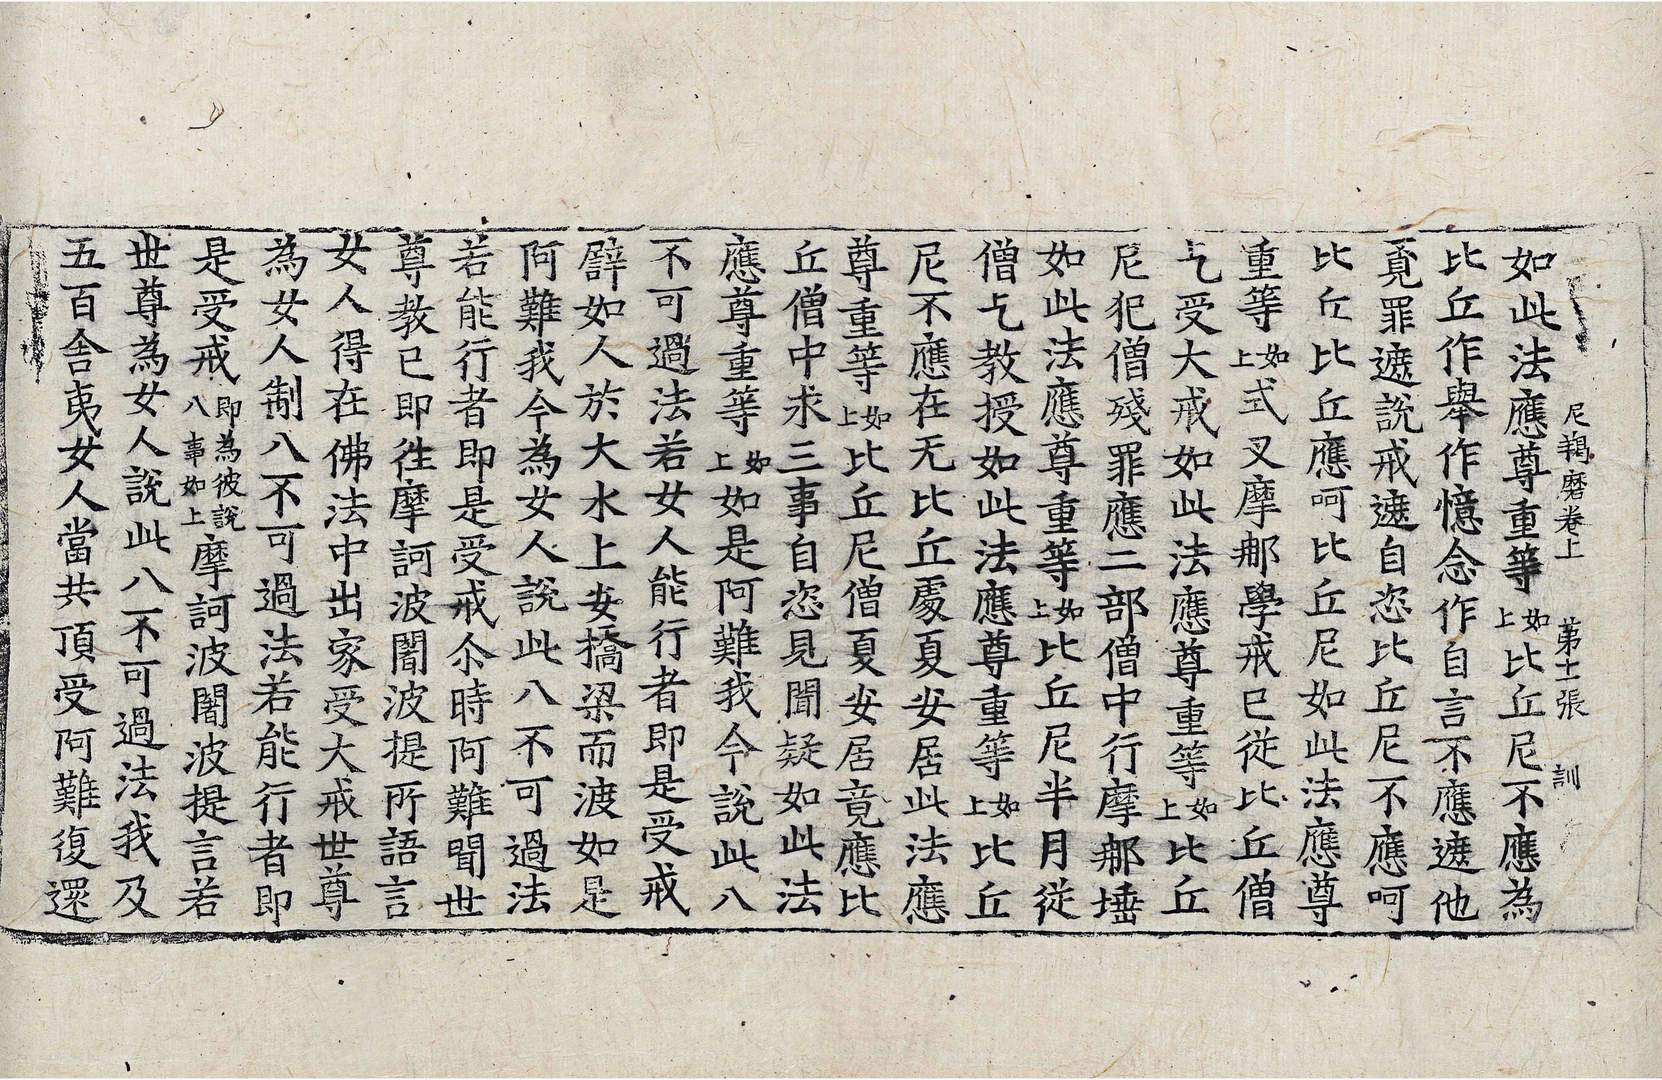 尼羯磨卷上 第十二張 訓
如此法應尊重等如上比丘尼不應為
比丘作舉作憶念作自言不應遮他
覔罪遮說戒遮自恣比丘尼不應呵
比丘比丘應呵比丘尼如此法應尊
重等如上式叉摩那學戒已從比丘僧
乞受大戒如此法應尊重等如上比丘
尼犯僧殘罪應二部僧中行摩那埵
如此法應尊重等如上比丘尼半月從
僧乞教授如此法應尊重等如上比丘
尼不應在无比丘處夏安居此法應
尊重等如上比丘尼僧夏安居竟應比
丘僧中求三事自恣見聞疑如此法
應尊重等如上如是阿難我今說此八
不可過法若女人能行者即是受戒
譬如人於大水上安橋梁而渡如是
阿難我今為女人說此八不可過法
若能行者即是受戒尒時阿難聞世
尊教已即往摩訶波闍波提所語言
女人得在佛法中出家受大戒世尊
為女人制八不可過法若能行者即
是受戒即為彼說八事如上摩訶波闍波提言若
世尊為女人說此八不可過法我及
五百舍夷女人當共頂受阿難復還